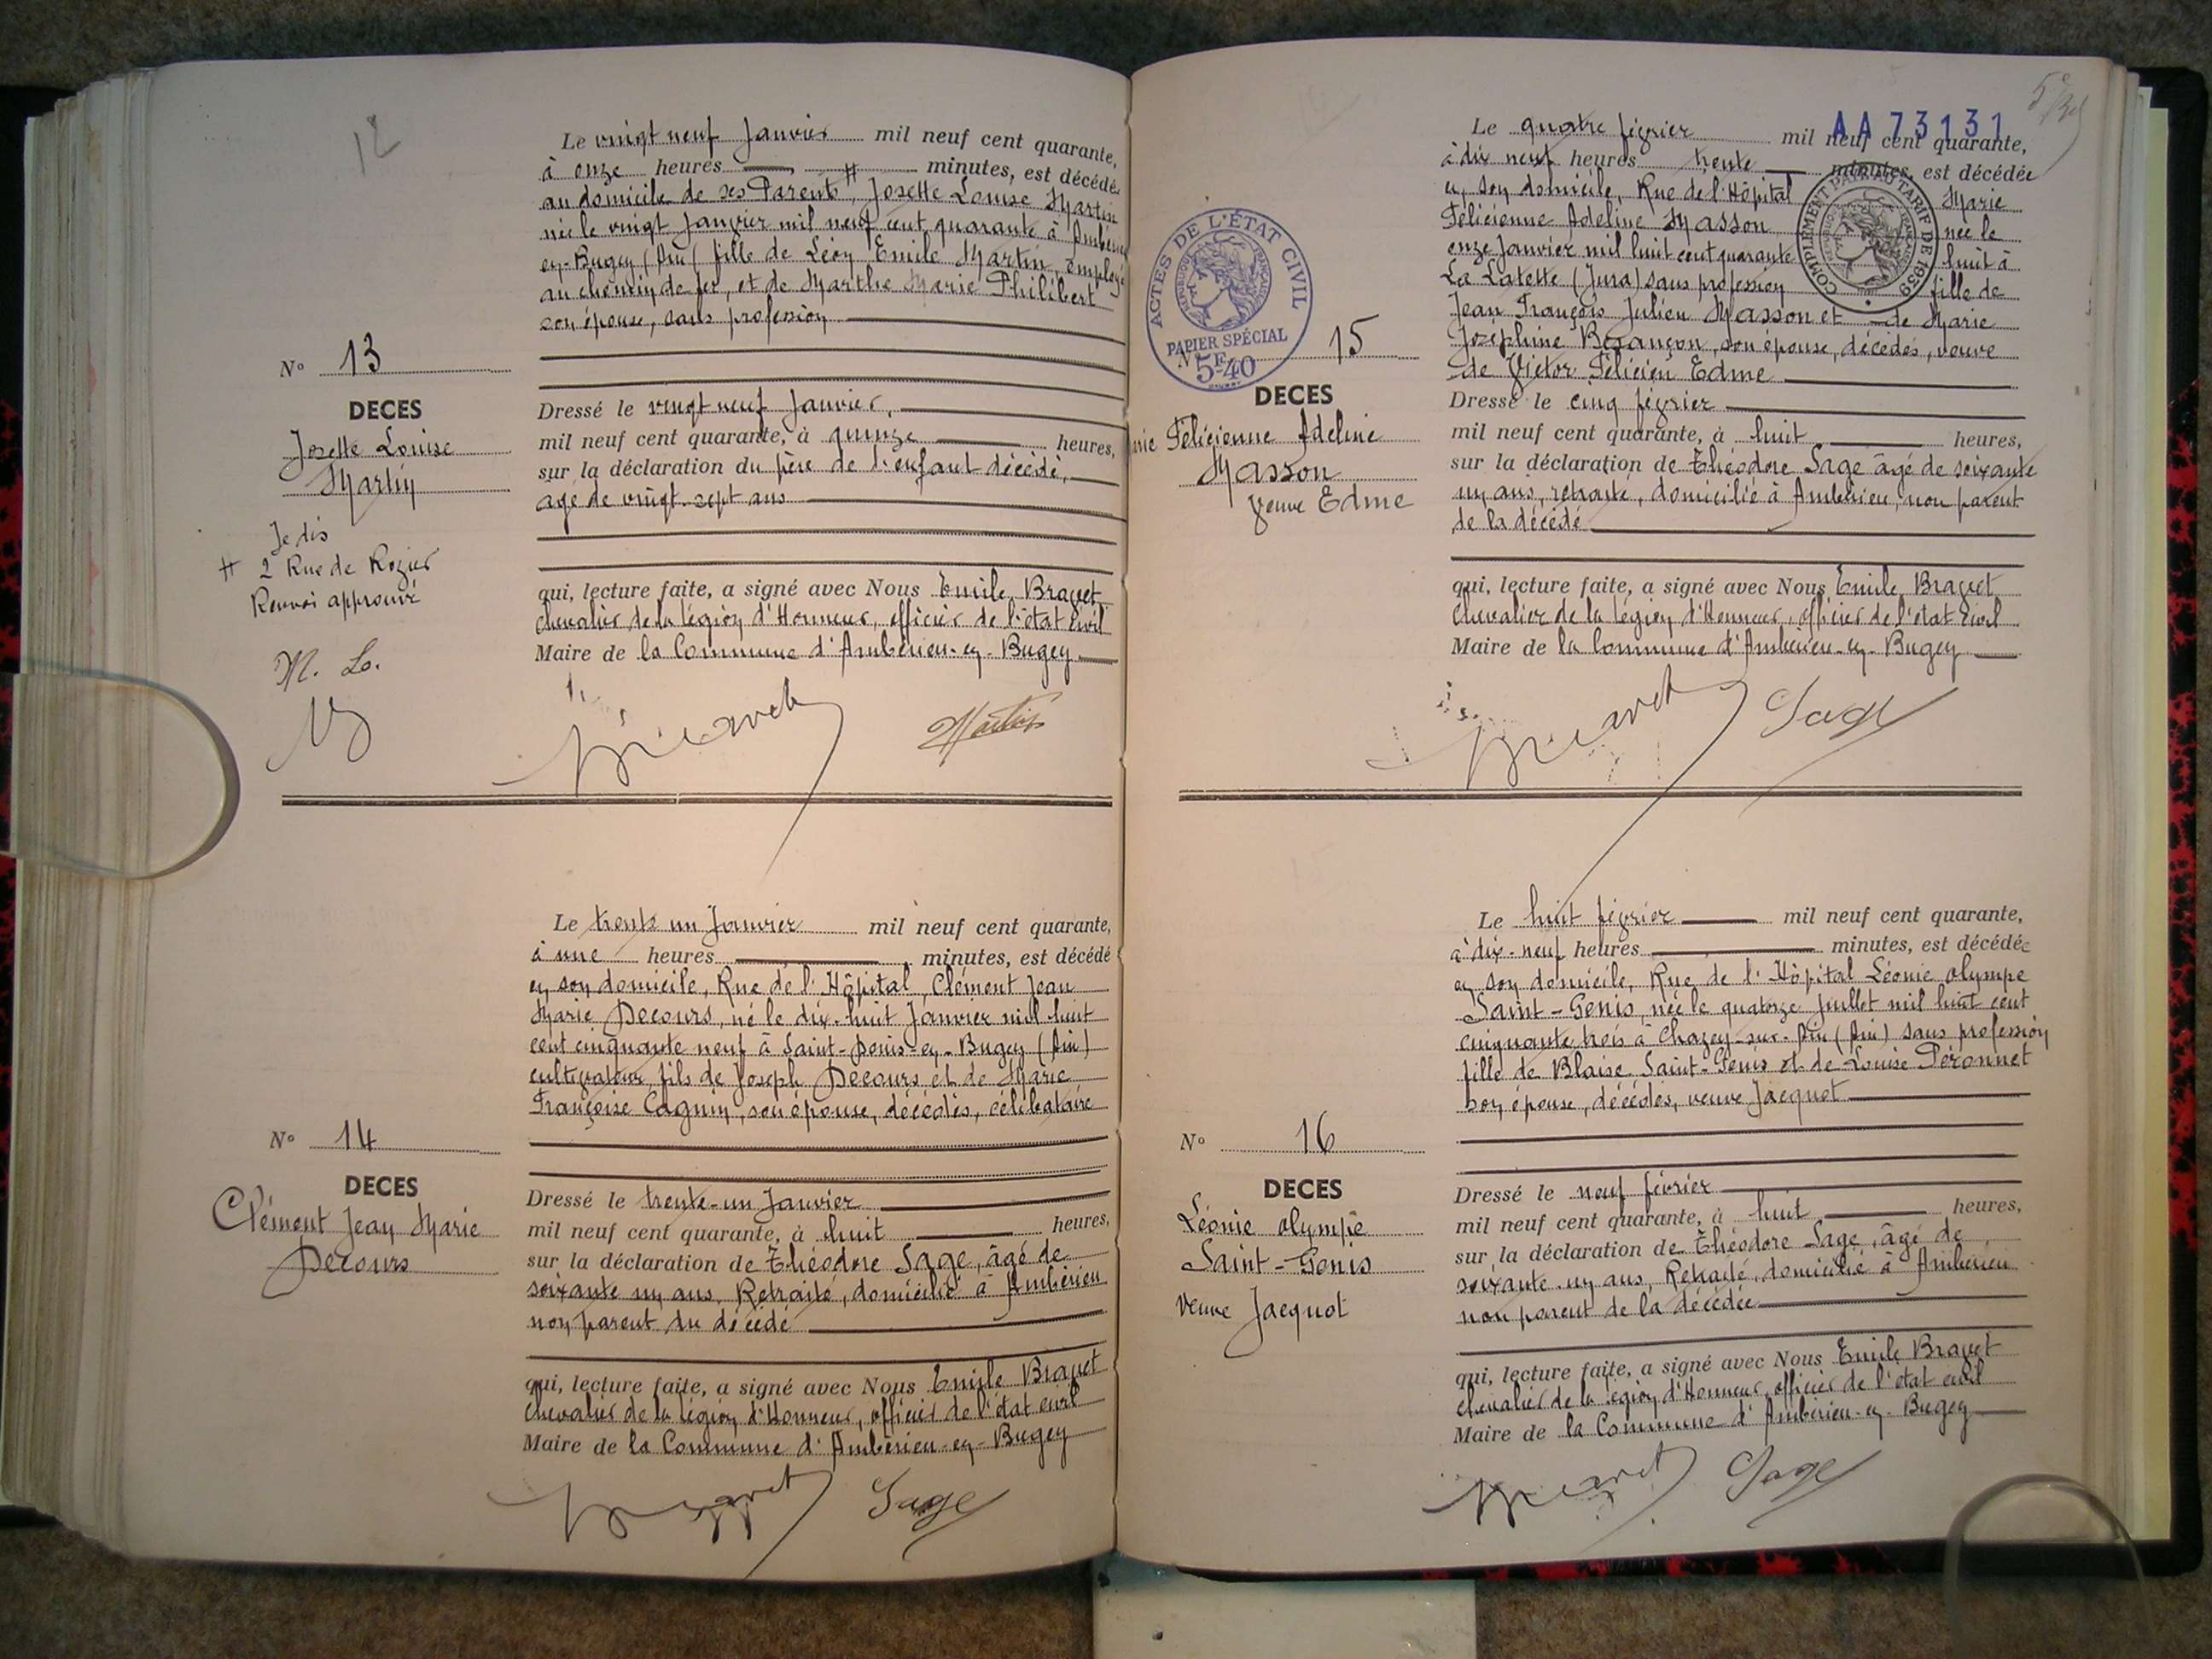 12
Le vingt neuf Janvier mil neuf cent quarante,
à onze heures minutes, est décédée
au domicile de ses Parents #, Josette Louise Martin
née le vingt Janvier mil neuf cent quarante à Ambérieu
en-Bugey (Ain) fille de Léon Emile Martin, employé
au chemin de fer, et de Marthe Marie Philibert
son épouse, sans profession
N° 13
DECES
Josette Louise
Martin
Je dis
# 2 Rue de Rozier
Renvoi approuvé
M. Lo.
Dressé le vingt neuf Janvier,
mil neuf cent quarante, à quinze heures,
sur la déclaration du père de l'enfant décédé,
agé de vingt-sept ans
qui, lecture faite, a signé avec Nous Emile Bravet
chevalier de la légion d'Honneur, officier de l'état civil
Maire de la Commune d'Ambérieu-en-Bugey
Bravet Martin
Le trente un Janvier mil neuf cent quarante,
à une heures minutes, est décédé
en son domicile, Rue de l'Hôpital, Clément Jean
Marie Decours, né le dix-huit Janvier mil huit
cent cinquante neuf à Saint-Denis-en-Bugey (Ain)
cultivateur, fils de Joseph Decours et de Marie
Françoise Cagnin, son épouse, décédés, célibataire
N° 14
DECES
Clément Jean Marie
Decours
Dressé le trente-un Janvier
mil neuf cent quarante, à huit heures,
sur la déclaration de Théodore Sage, âgé de
soixante un ans, Retraité, domicilié à Ambérieu
non parent du décédé
qui, lecture faite, a signé avec Nous Emile Bravet
chevalier de la légion d'Honneur, officier de l'état civil
Maire de la Commune d'Ambérieu-en-Bugey
Bravet Sage
AA 73131
Le quatre février mil neuf cent quarante,
à dix neuf heures trente minutes, est décédée
en son domicile, Rue de l'Hôpital Marie
Félicienne Adeline Masson née le
onze Janvier mil huit cent quarante huit à
La Latette (Jura) sans profession fille de
Jean François Julien Masson et de Marie
Joséphine Besançon, son épouse, décédés, veuve
de Victor Félicien Edme
COMPLÉMENT PAYÉ AU TARIF DE 1939
ACTES DE L'ÉTAT CIVIL
RÉPUBLIQUE FRANÇAISE
PAPIER SPÉCIAL
5F40
N° 15
DECES
Félicienne Adeline
Masson
veuve Edme
Dressé le cinq février
mil neuf cent quarante, à huit heures,
sur la déclaration de Théodore Sage âgé de soixante
un ans, retraité, domicilié à Ambérieu, non parent
de la décédé
qui, lecture faite, a signé avec Nous Emile Bravet
Chevalier de la légion d'Honneur, officier de l'état civil
Maire de la Commune d'Ambérieu-en-Bugey
Bravet Sage
Le huit février mil neuf cent quarante,
à dix-neuf heures minutes, est décédée
en son domicile, Rue de l'Hôpital Léonie Olympe
Saint-Genis, née le quatorze Juillet mil huit cent
cinquante trois à Chazey-sur-Ain (Ain) sans profession
fille de Blaise Saint-Genis et de Louise Péronnet
son épouse, décédés, veuve Jacquot
N° 16
DECES
Léonie Olympe
Saint-Genis
Veuve Jacquot
Dressé le neuf février
mil neuf cent quarante, à huit heures,
sur la déclaration de Théodore Sage, âgé de
soixante un ans, Retraité, domicilié à Ambérieu
non parent de la décédée
qui, lecture faite, a signé avec Nous Emile Bravet
chevalier de la légion d'Honneur, officier de l'état civil
Maire de la Commune d'Ambérieu-en-Bugey
Bravet Sage